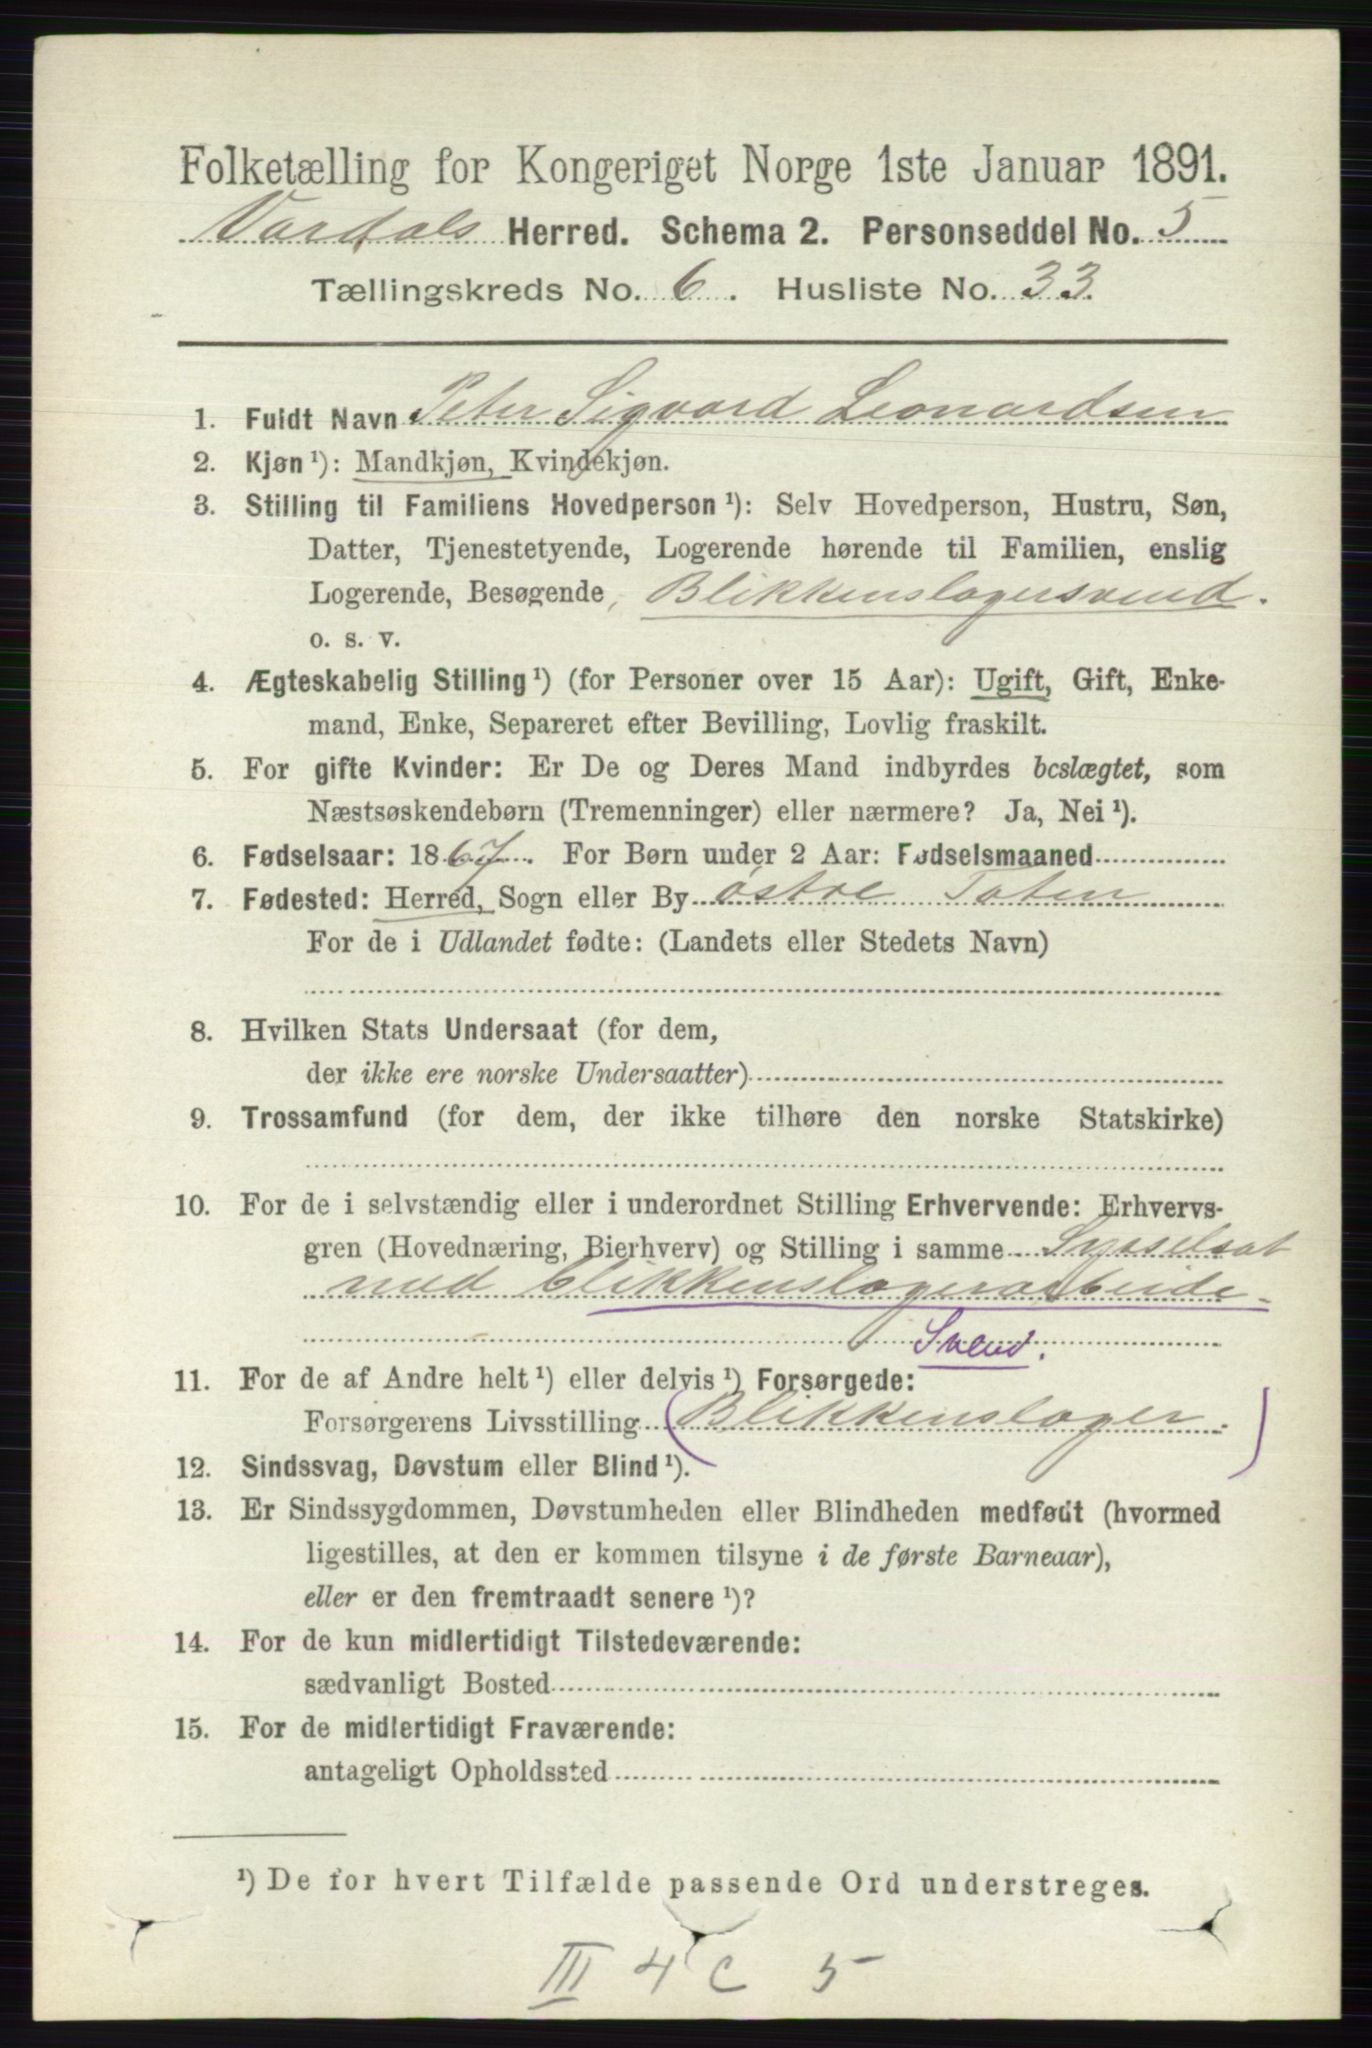 Folketælling for Kongeriget Norge 1ste Januar 1891.
Vardals Herred. Schema 2. Personseddel No. 5
Tællingskreds No. 6. Husliste No. 33.
1. Fuldt Navn Peter Sigvard Leonardsen
2. Kjøn ¹): Mandkjøn, Kvindekjøn.
3. Stilling til Familiens Hovedperson ¹): Selv Hovedperson, Hustru, Søn,
Datter, Tjenestetyende, Logerende hørende til Familien, enslig
Logerende, Besøgende, Blikkenslagersvend.
o. s. v.
4. Ægteskabelig Stilling ¹) (for Personer over 15 Aar): Ugift, Gift, Enke-
mand, Enke, Separeret efter Bevilling, Lovlig fraskilt.
5. For gifte Kvinder: Er De og Deres Mand indbyrdes beslægtet, som
Næstsøskendebørn (Tremenninger) eller nærmere? Ja, Nei ¹).
6. Fødselsaar: 1867. For Børn under 2 Aar: Fødselsmaaned
7. Fødested: Herred, Sogn eller By østre Toten
For de i Udlandet fødte: (Landets eller Stedets Navn)
8. Hvilken Stats Undersaat (for dem,
der ikke ere norske Undersaatter)
9. Trossamfund (for dem, der ikke tilhøre den norske Statskirke)
10. For de i selvstændig eller i underordnet Stilling Erhvervende: Erhvervs-
gren (Hovednæring, Bierhverv) og Stilling i samme Sysselsat
med blikkenslagerarbeide.
Svend.
11. For de af Andre helt ¹) eller delvis ¹) Forsørgede:
Forsørgerens Livsstilling (Blikkenslager.)
12. Sindssvag, Døvstum eller Blind ¹).
13. Er Sindssygdommen, Døvstumheden eller Blindheden medfødt (hvormed
ligestilles, at den er kommen tilsyne i de første Barneaar),
eller er den fremtraadt senere ¹)?
14. For de kun midlertidigt Tilstedeværende:
sædvanligt Bosted
15. For de midlertidigt Fraværende:
antageligt Opholdssted
¹) De for hvert Tilfælde passende Ord understreges.
III 4 C 5